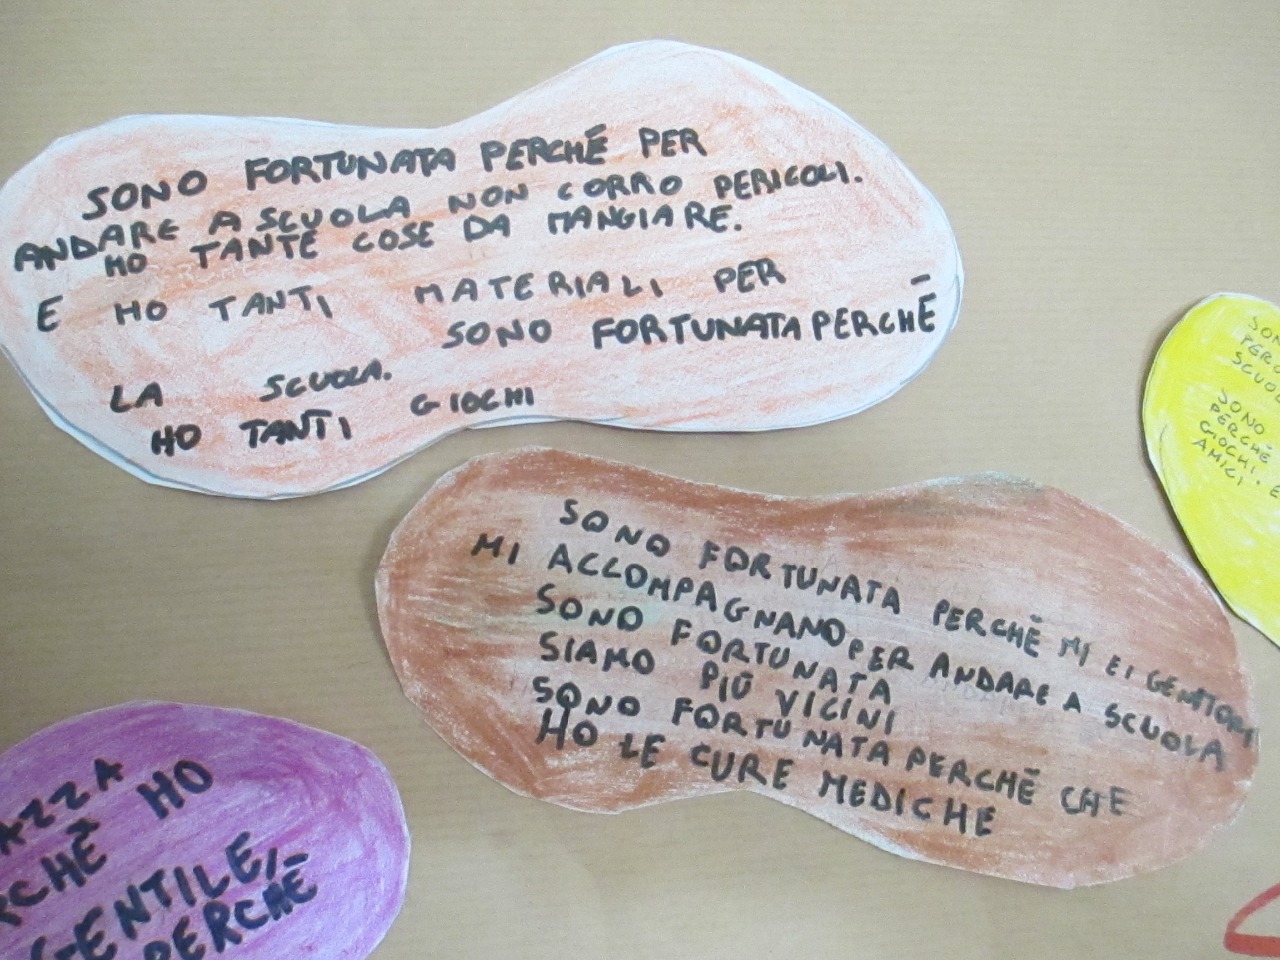 SONO FORTUNATA PERCHÉ PER
ANDARE A SCUOLA NON CORRO PERICOLI.
HO TANTE COSE DA MANGIARE.
E HO TANTI MATERIALI PER
SONO FORTUNATA PERCHÉ
LA SCUOLA.
HO TANTI GIOCHI
SONO FORTUNATA PERCHÉ MI EI GENITORI
MI ACCOMPAGNANO PER ANDARE A SCUOLA
SONO FORTUNATA
SIAMO PIÚ VICINI
SONO FORTUNATA PERCHÉ CHE
HO LE CURE MEDICHE
SON
PERC
SCUOL
SONO
PERCHÉ
GIOCHI. E
AMICI
AZZA
RCHÉ HO
GENTILE,
PERCHÉ